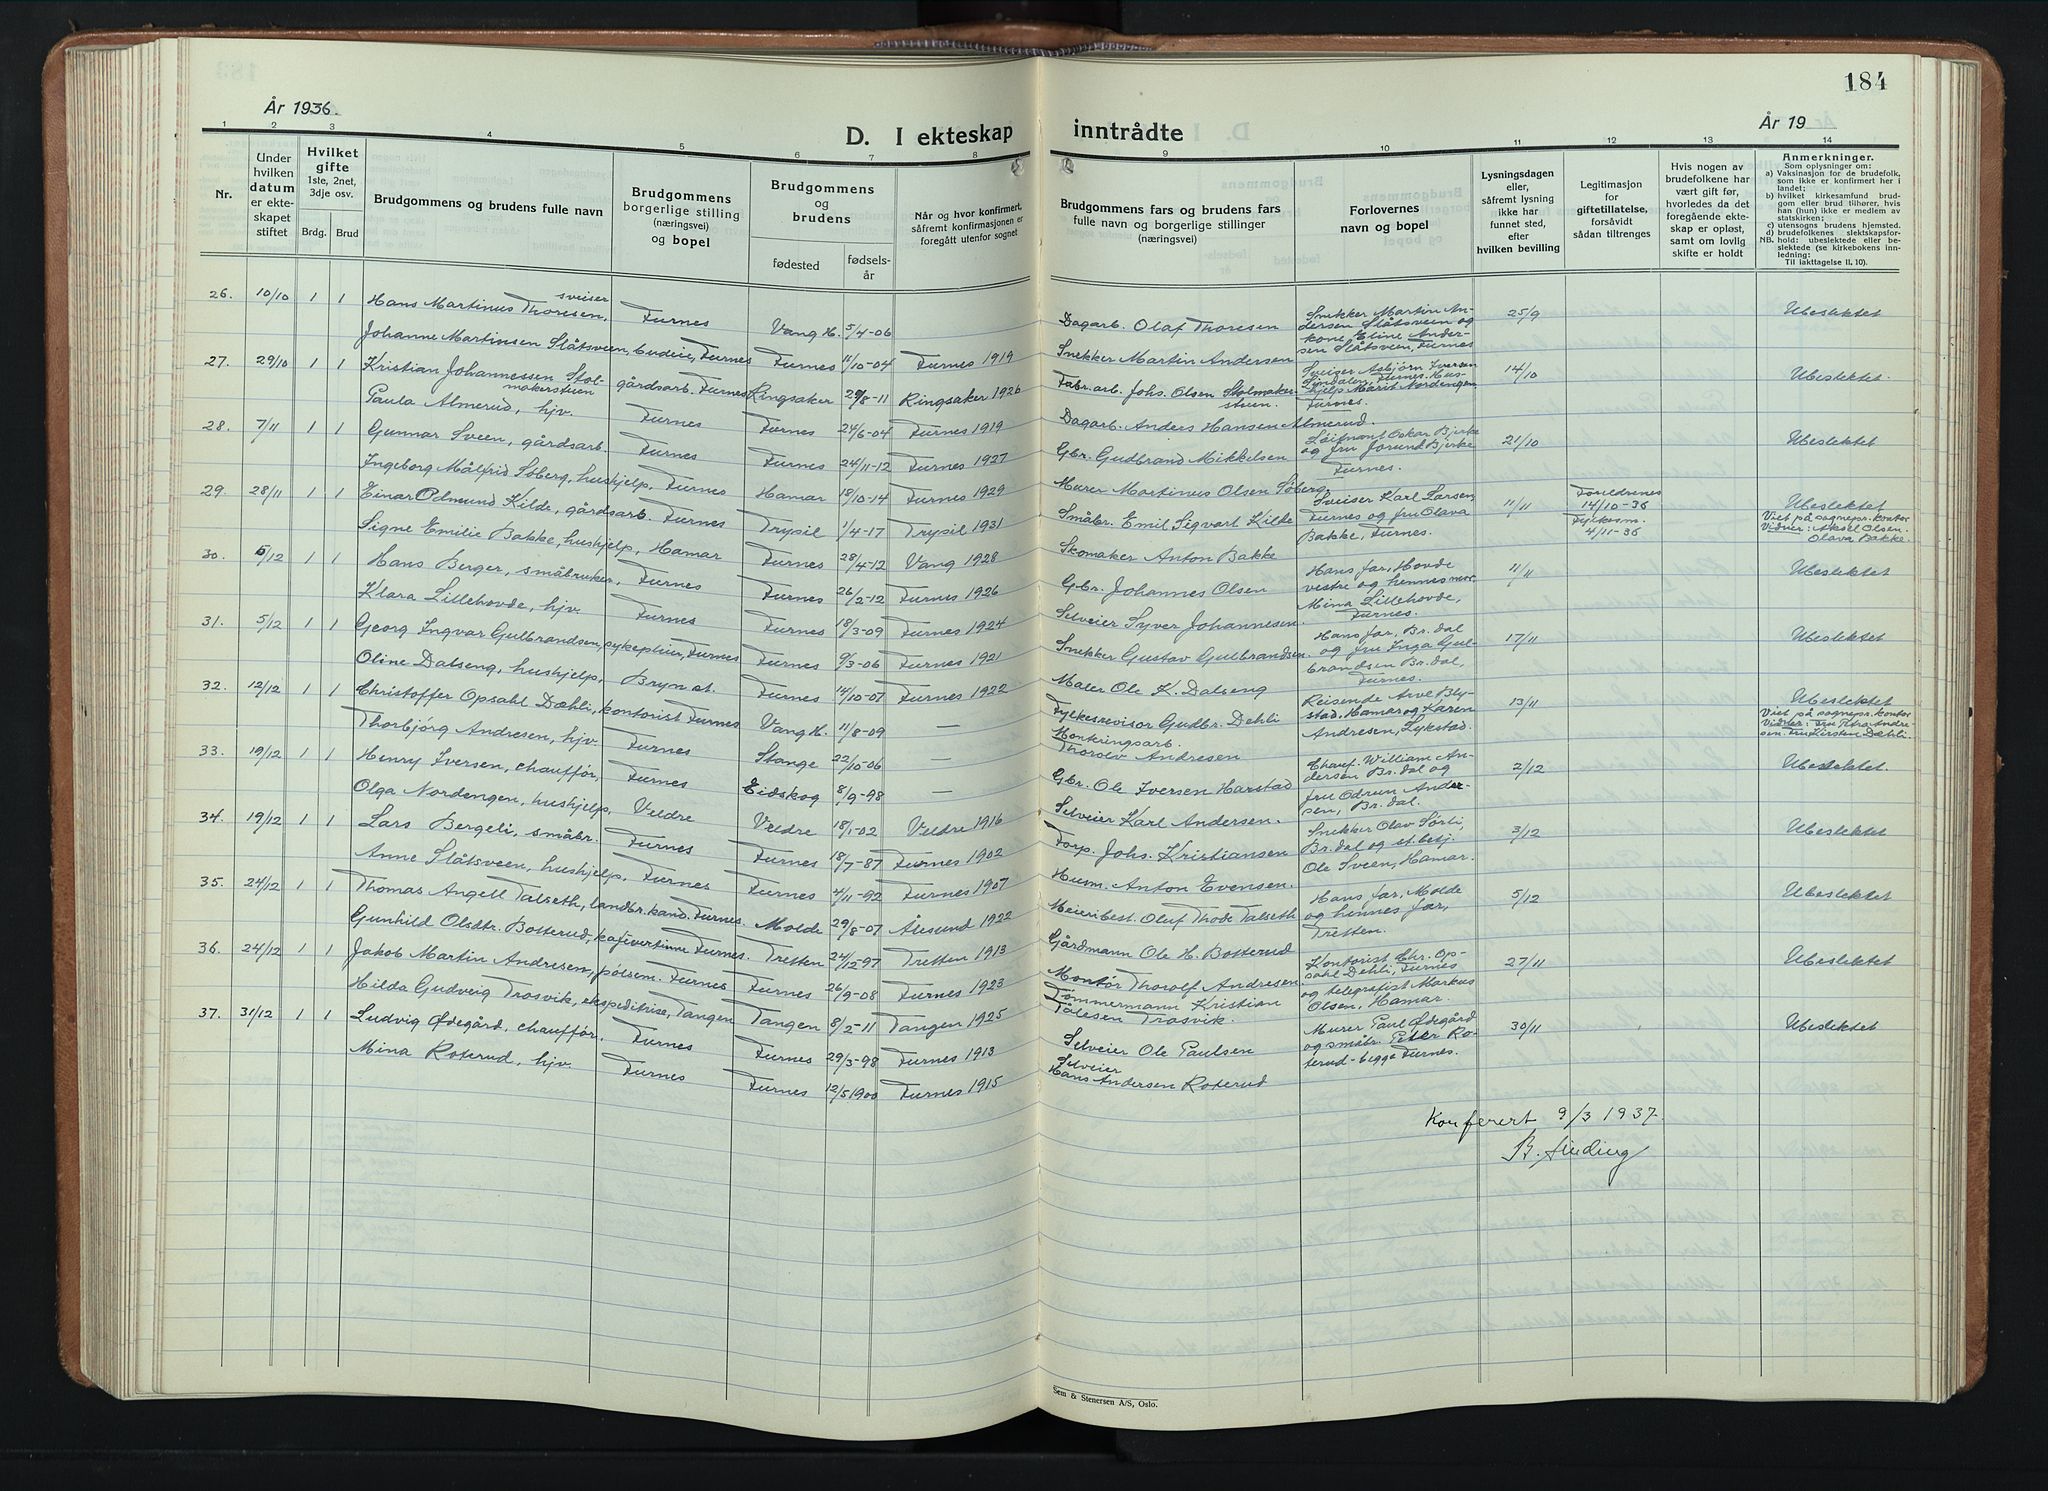 184
År 1936.
År 19
D. I ekteskap inntrådte
1 2 3 4 5 6 7 8 9 10 11 12 13 14
Nr.
Under hvilken datum er ekteskapet stiftet
Hvilket gifte 1ste, 2net, 3dje osv.
Brdg. Brud
Brudgommens og brudens fulle navn
Brudgommens borgerlige stilling (næringsvei) og bopel
Brudgommens og brudens
fødested
fødselsår
Når og hvor konfirmert, såfremt konfirmasjonen er foregått utenfor sognet
Brudgommens fars og brudens fars fulle navn og borgerlige stillinger (næringsvei)
Forlovernes navn og bopel
Lysningsdagen eller, såfremt lysning ikke har funnet sted, efter hvilken bevilling
Legitimasjon for giftetillatelse, forsåvidt sådan tiltrenges
Hvis nogen av brudefolkene har vært gift før, hvorledes da det foregående ekteskap er opløst, samt om lovlig skifte er holdt
Anmerkninger.
Som oplysninger om:
a) Vaksinasjon for de brudefolk, som ikke er konfirmert her i landet;
b) hvilket kirkesamfund brudgom eller brud tilhører, hvis han (hun) ikke er medlem av statskirken;
c) utensogns brudens hjemsted.
d) brudefolkenes slektskapsforhold: ubeslektede eller beslektede (se kirkebokens innledning:
NB.
Til iakttagelse II. 10).
26. 10/10 1 1 Hans Martinus Thoresen, sveiser Furnes Vang H. 5/4-06 Dagarb. Olaf Thoresen Snekker Martin Andersen Slåtsveen og kone Eline Andersen Slåtsveen, Furnes 25/9 Ubeslektet
Johanne Martinsen Slåtsveen, budeie, Furnes Furnes 11/10-04 Furnes 1919 Snekker Martin Andersen
27. 29/10 1 1 Kristian Johannessen Stolmakerstuen gårdsarb. Furnes Ringsaker 29/8-11 Ringsaker 1926 Fabr.arb. Johs. Olsen Stolmakerstuen. Sveiser Asbjørn Iversen Sindalen, Furnes. Hushjelp Marit Nordengen, Furnes. 14/10 Ubeslektet.
Paula Almerud, hjv. Furnes Furnes 24/6-04 Furnes 1919 Dagarb. Anders Hansen Almerud.
28. 7/11 1 1 Gunnar Sveen, gårdsarb. Furnes Furnes 24/11-12 Furnes 1927 Gbr. Gudbrand Mikkelsen Løitnant Oskar Bjerke og fru Jorund Bjerke Furnes. 21/10 Ubeslektet
Ingeborg Målfrid Søberg, hushjelp, Furnes Hamar 18/10-14 Furnes 1929 Murer Martinus Olsen Søberg.
29. 28/11 1 1 Einar Odmund Kilde, gårdsarb. Furnes Trysil 1/4-17 Trysil 1931 Småbr. Emil Sigvart Kilde Sveiser Karl Larsen, Furnes og fru Olava Bakke, Furnes. 11/11 Foreldrenes 14/10-36 Fylkesm. 4/11-36 Ubeslektet Viet på sognepr. kontor Vidner: Aksel Olsen. Olava Bakke.
Signe Emilie Bakke, hushjelp, Hamar Furnes 28/4-12 Vang 1928 Skomaker Anton Bakke
30. 5/12 1 1 Hans Berger, småbruker, Furnes Furnes 26/2-12 Furnes 1926 Gbr. Johannes Olsen Hans far, Hovde vestre og hennes mor Mina Lillehovde, Furnes. 11/11 Ubeslektet
Klara Lillehovde, hjv. Furnes Furnes 18/3-09 Furnes 1924 Selveier Syver Johannesen.
31. 5/12 1 1 Georg Ingvar Gulbrandsen, sykepleier, Furnes Furnes 9/3-06 Furnes 1921 Snekker Gustav Gulbrandsen. Hans far, Br.dal og fru Inga Gulbrandsen Br.dal, Furnes. 17/11 Ubeslektet
Oline Dalseng, hushjelp, Bryn st. Furnes 14/10-07 Furnes 1922 Maler Ole K. Dalseng
32. 12/12 1 1 Christoffer Opsahl Dæhli, kontorist Furnes Vang H. 11/8-09 — Fylkesrevisor Gudbr. Dehli Reisende Arve Blystad, Hamar og Karen Andresen, Lykstad. 13/11 Ubeslektet Viet på sognepr. kontor Vidner: Fru Petra Andresen. Fru Kirsten Dæhli.
Thorbjørg Andresen, hjv. Furnes Stange 22/10-06 — Montringsarb. Thorolv Andresen
33. 19/12 1 1 Henry Iversen, chauffør, Furnes Eidskog 8/9-98 — Gbr. Ole Iversen Harstad Chauf. William Andersen Br.dal og fru Odrun Andersen, Br.dal. 2/12 Ubeslektet.
Olga Nordengen, hushjelp, Veldre Veldre 18/1-02 Veldre 1916 Selveier Karl Andersen.
34. 19/12 1 1 Lars Bergeli, småbr. Furnes Furnes 18/7-87 Furnes 1902 Forp. Johs. Kristiansen Snekker Olav Sørli, Br.dal og st.betj. Ole Sveen, Hamar. 3/12 Ubeslektet
Anne Slåtsveen, hushjelp, Furnes Furnes 4/11-92 Furnes 1907 Husm. Anton Evensen.
35. 24/12 1 1 Thomas Angell Talseth, landbr. kand. Furnes. Molde 29/8-07 Ålesund 1922 Meieribest. Oluf Thode Talseth Hans far, Molde og hennes far, Tretten. 5/12 Ubeslektet
Gunhild Olsdtr. Botterud, kafévertinne Furnes. Tretten 24/12-97 Tretten 1913 Gårdmann Ole H. Botterud
36. 24/12 1 1 Jakob Martin Andresen, pølsem. Furnes Furnes 26/9-08 Furnes 1923 Montør Thorolf Andresen. Kontorist Chr. Opsahl Dehli, Furnes og telegrafist Markus Olsen, Hamar. 27/11 Ubeslektet
Hilda Gudveig Trosvik, ekspeditrise, Tangen Tangen 8/2-11 Tangen 1925 Tømmermann Kristian Tålesen Trosvik.
37. 31/12 1 1 Ludvig Ødegård, chauffør, Furnes Furnes 29/3-98 Furnes 1913 Selveier Ole Paulsen Murer Paul Ødegård og småbr. Peter Roterud - begge Furnes. 30/11 Ubeslektet
Mina Roterud, hjv. Furnes Furnes 12/5 1900 Furnes 1915 Selveier Hans Andersen Roterud
Konferert 9/3 1937.
B. Sinding
Sem & Stenersen A/S, Oslo.